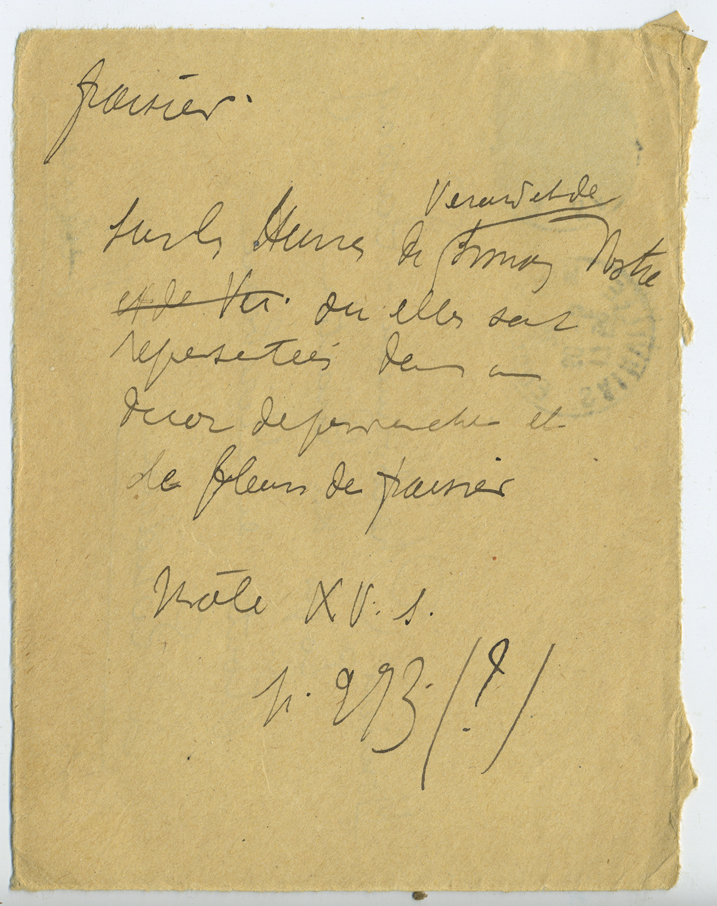 fraisier.
Verard et de
Sur les Heures de Simon Vostre
et de Ver. où elles sont
représentées dans un
décor de pervenches et
de fleurs de fraisier
Mâle XV. s.
p. 293. (?)